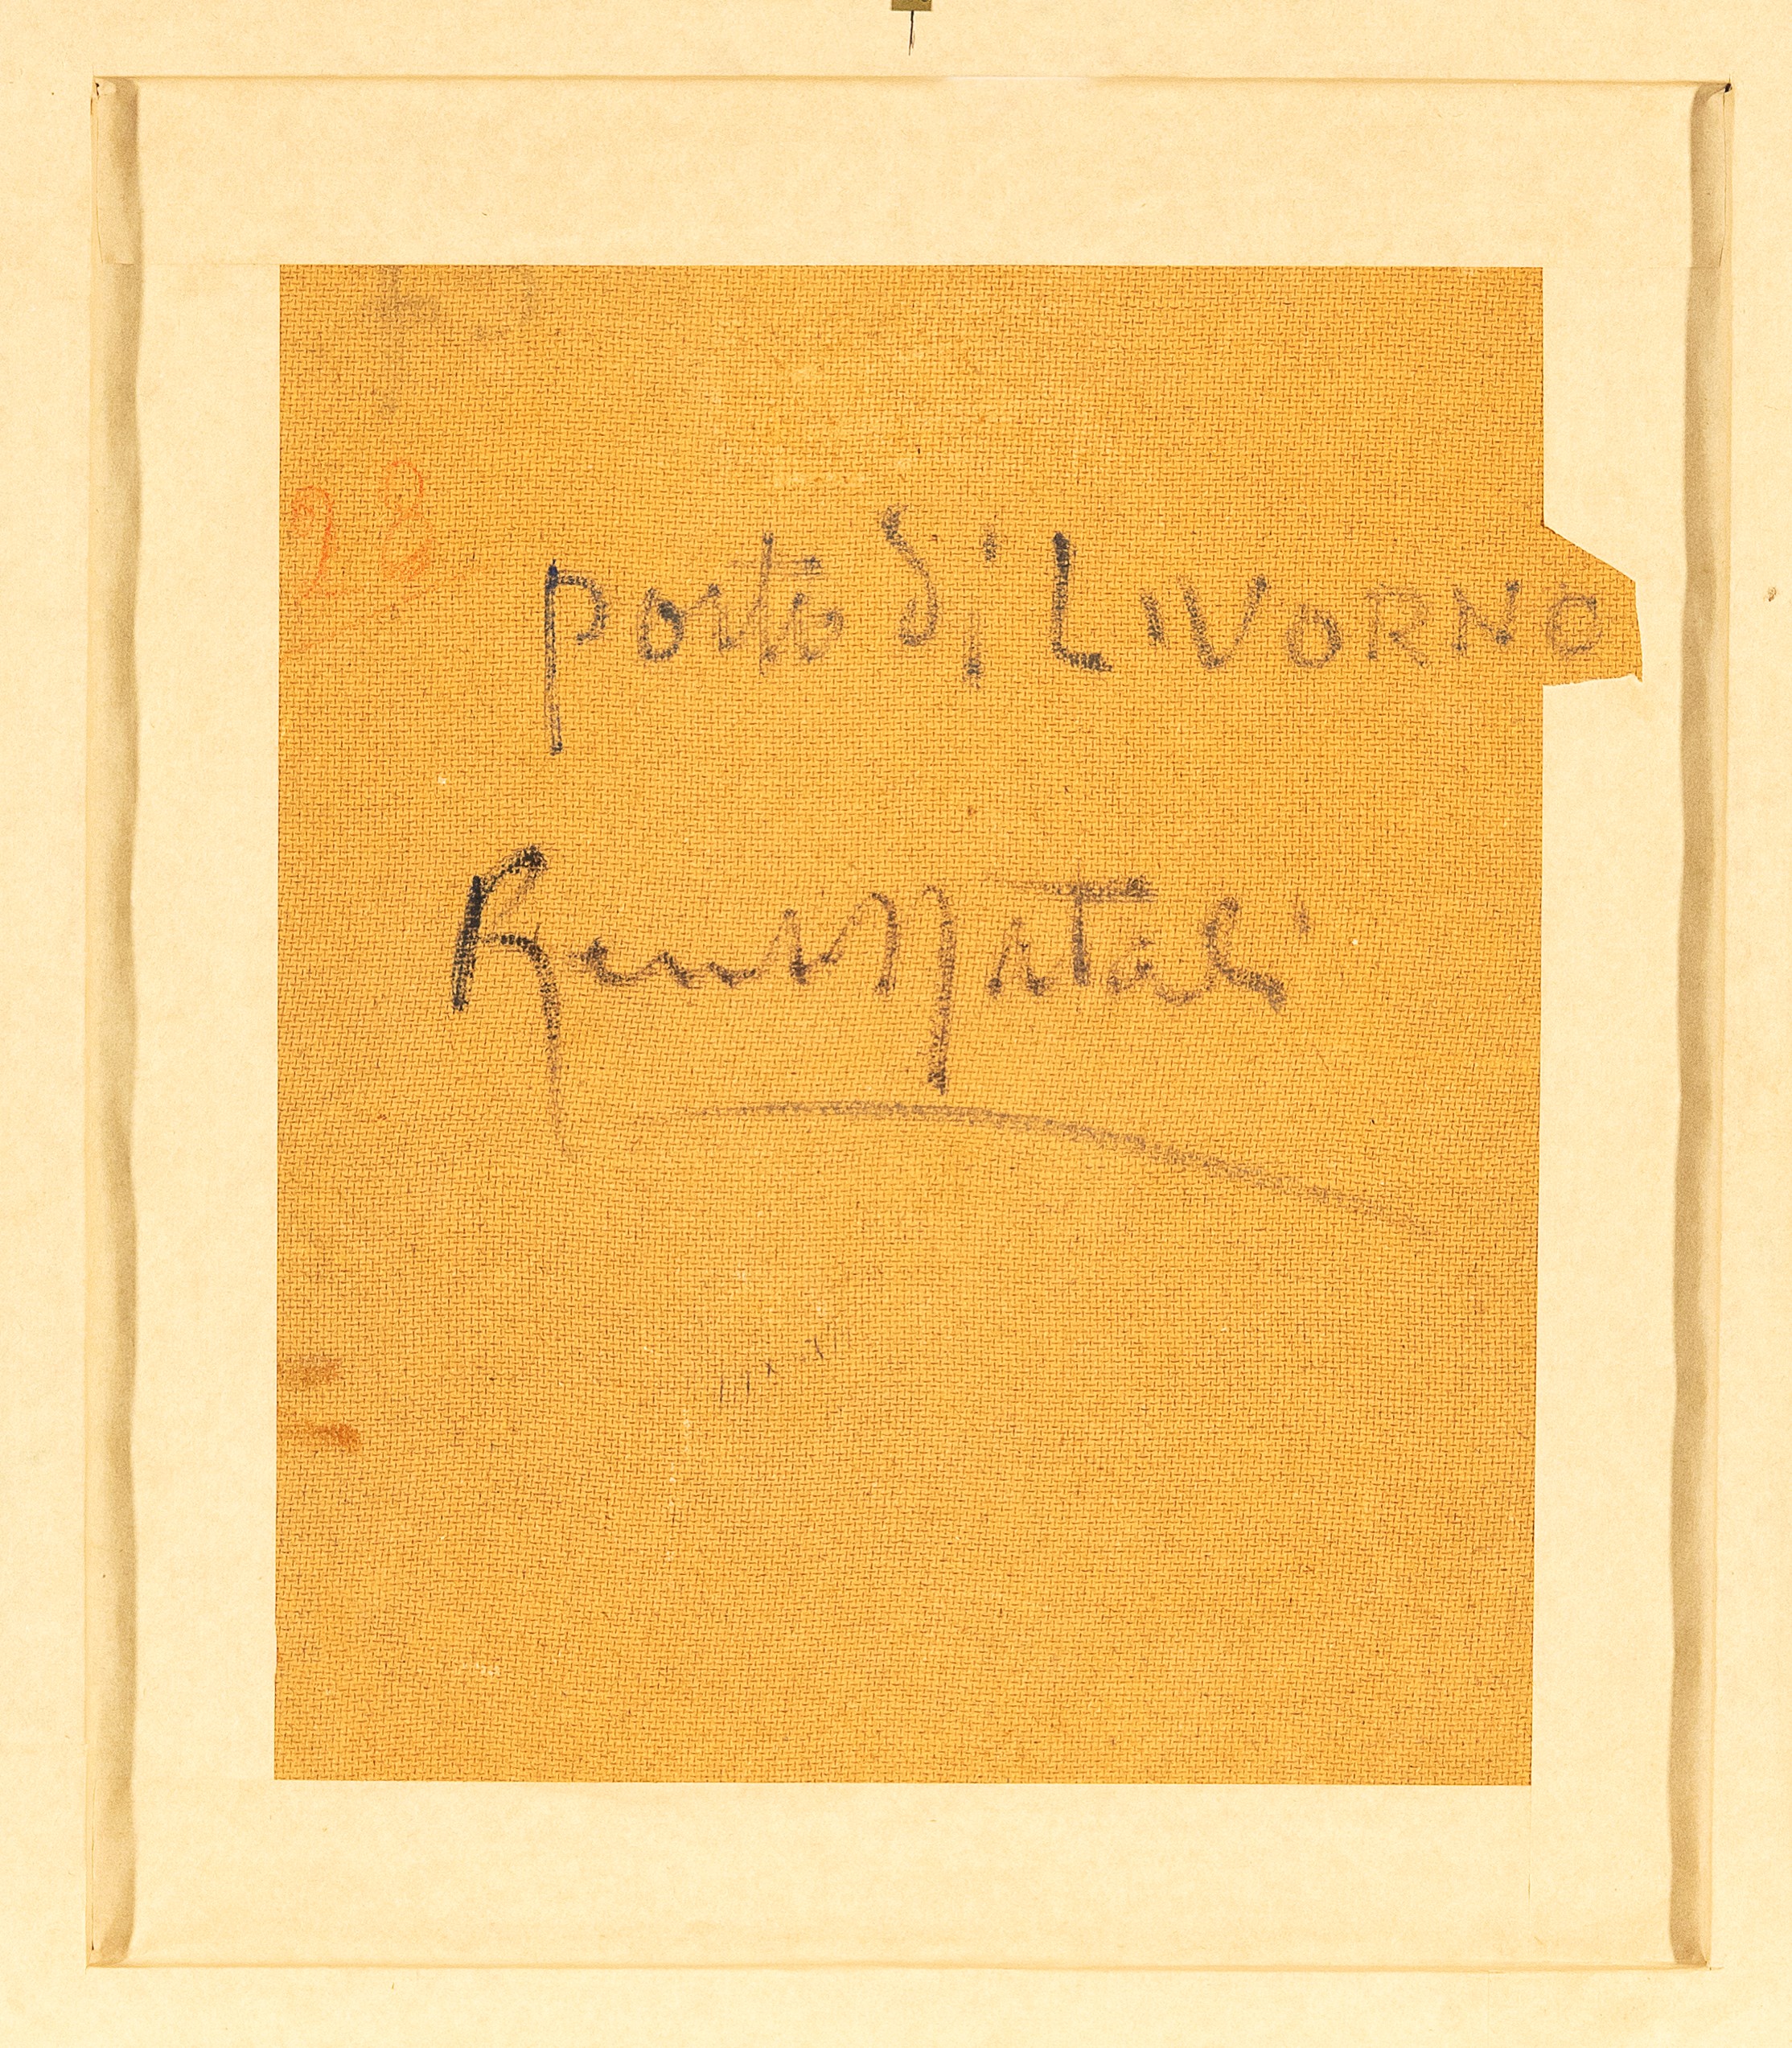 28
porto di LIVORNO
Renzo Natali